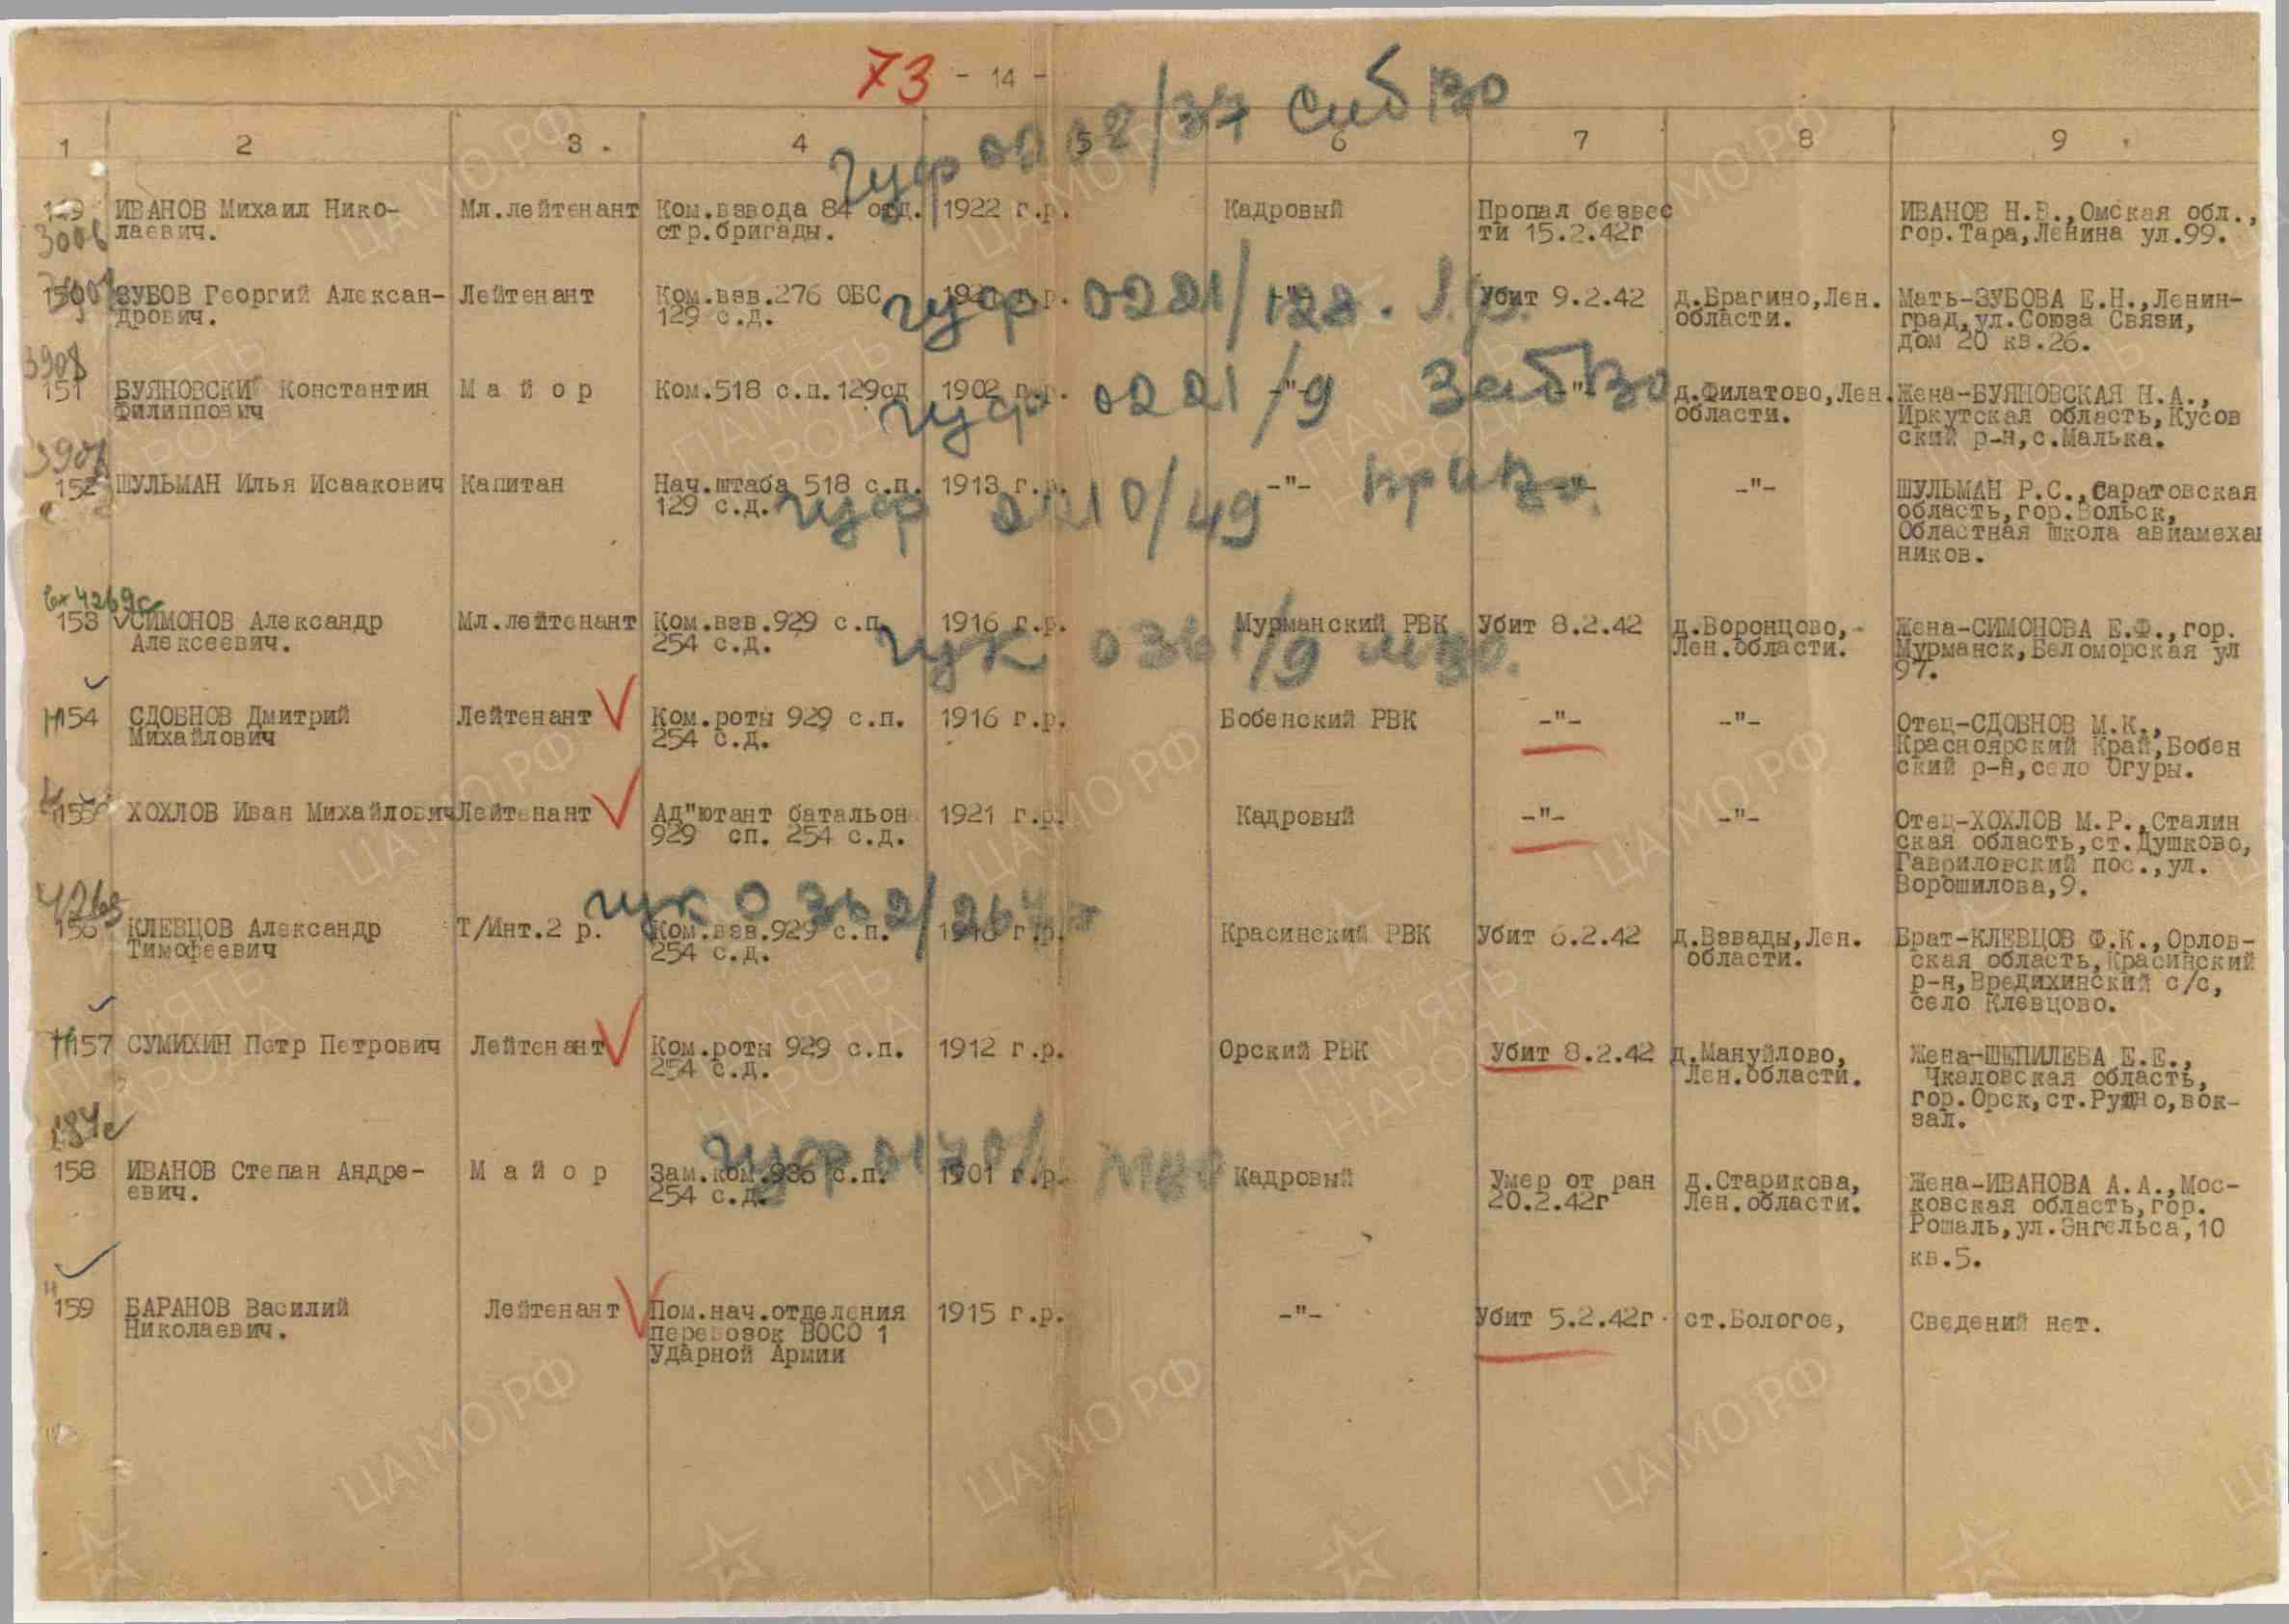 73 - 14 -
1 2 3. 4 5 6 7 8 9
гуф 0 /37 СибВО
149 ИВАНОВ Михаил Нико- Мл.лейтенант Ком.взвода 84 отд. 1922 г.р. Кадровый Пропал безвес ИВАНОВ Н.В.,Омская обл.,
3906 лаевич. стр.бригады. ти 15.2.42г гор.Тара,Ленина ул.99.
150 ЗУБОВ Георгий Алексан- Лейтенант Ком.взв.276 ОБС г.р. -"- Убит 9.2.42 д.Брагино,Лен. Мать-ЗУБОВА Е.Н.,Ленин-
дрович. 129 с.д. области. град,ул.Союза Связи,
дом 20 кв.26.
гуф 0221/122.
3908
151 БУЯНОВСКИЙ Константин М а й о р Ком.518 с.п.129сд 1902 г.р. -"- -"- д.Филатово,Лен. Жена-БУЯНОВСКАЯ Н.А.,
Филиппович области. Иркутская область,Кусов
ский р-н,с.Малька.
гуф 0221/9 ЗабВО
152 ШУЛЬМАН Илья Исаакович Капитан Нач.штаба 518 с.п. 1913 г.р. -"- -"- -"- ШУЛЬМАН Р.С.,Саратовская
129 с.д. область,гор.Вольск,
Областная школа авиамехан
ников.
гуф 0210/49 ПриВо.
вх 4269с
153 СИМОНОВ Александр Мл.лейтенант Ком.взв.929 с.п. 1916 г.р. Мурманский РВК Убит 8.2.42 д.Воронцово,- Жена-СИМОНОВА Е.Ф.,гор.
Алексеевич. 254 с.д. Лен.области. Мурманск,Беломорская ул
97.
гук 0361/9 мво.
154 СДОБНОВ Дмитрий Лейтенант Ком.роты 929 с.п. 1916 г.р. Бобенский РВК -"- -"- Отец-СДОБНОВ М.К.,
Михайлович 254 с.д. Красноярский Край,Бобен
ский р-н,село Огуры.
155 ХОХЛОВ Иван Михайлович Лейтенант Ад"ютант батальон 1921 г.р. Кадровый -"- -"- Отец-ХОХЛОВ М.Р.,Сталин
929 сп. 254 с.д. ская область,ст.Душково,
Гавриловский пос.,ул.
Ворошилова,9.
гук 0362/264
156 КЛЕВЦОВ Александр Т/Инт.2 р. Ком.взв.929 с.п. г.р. Красинский РВК Убит 6.2.42 д.Взвады,Лен. Брат-КЛЕВЦОВ Ф.К.,Орлов-
Тимофеевич 254 с.д. области. ская область,Красинский
р-н,Вредихинский с/с,
село Клевцово.
157 СУМИХИН Петр Петрович Лейтенант Ком.роты 929 с.п. 1912 г.р. Орский РВК Убит 8.2.42 д.Мануйлово, Жена-ШЕПИЛЕВА Е.Е.,
254 с.д. Лен.области. Чкаловская область,
гор.Орск,ст.Рудно,вок-
зал.
гуф 0170/ МВО
158 ИВАНОВ Степан Андре- М а й о р Зам.ком.936 с.п. 1901 г.р. Кадровый Умер от ран д.Старикова, Жена-ИВАНОВА А.А.,Мос-
евич. 254 с.д. 20.2.42г Лен.области. ковская область,гор.
Рошаль,ул.Энгельса,10
кв.5.
159 БАРАНОВ Василий Лейтенант Пом.нач.отделения 1915 г.р. -"- Убит 5.2.42г. ст.Бологое, Сведений нет.
Николаевич. перевозок ВОСО 1
Ударной Армии